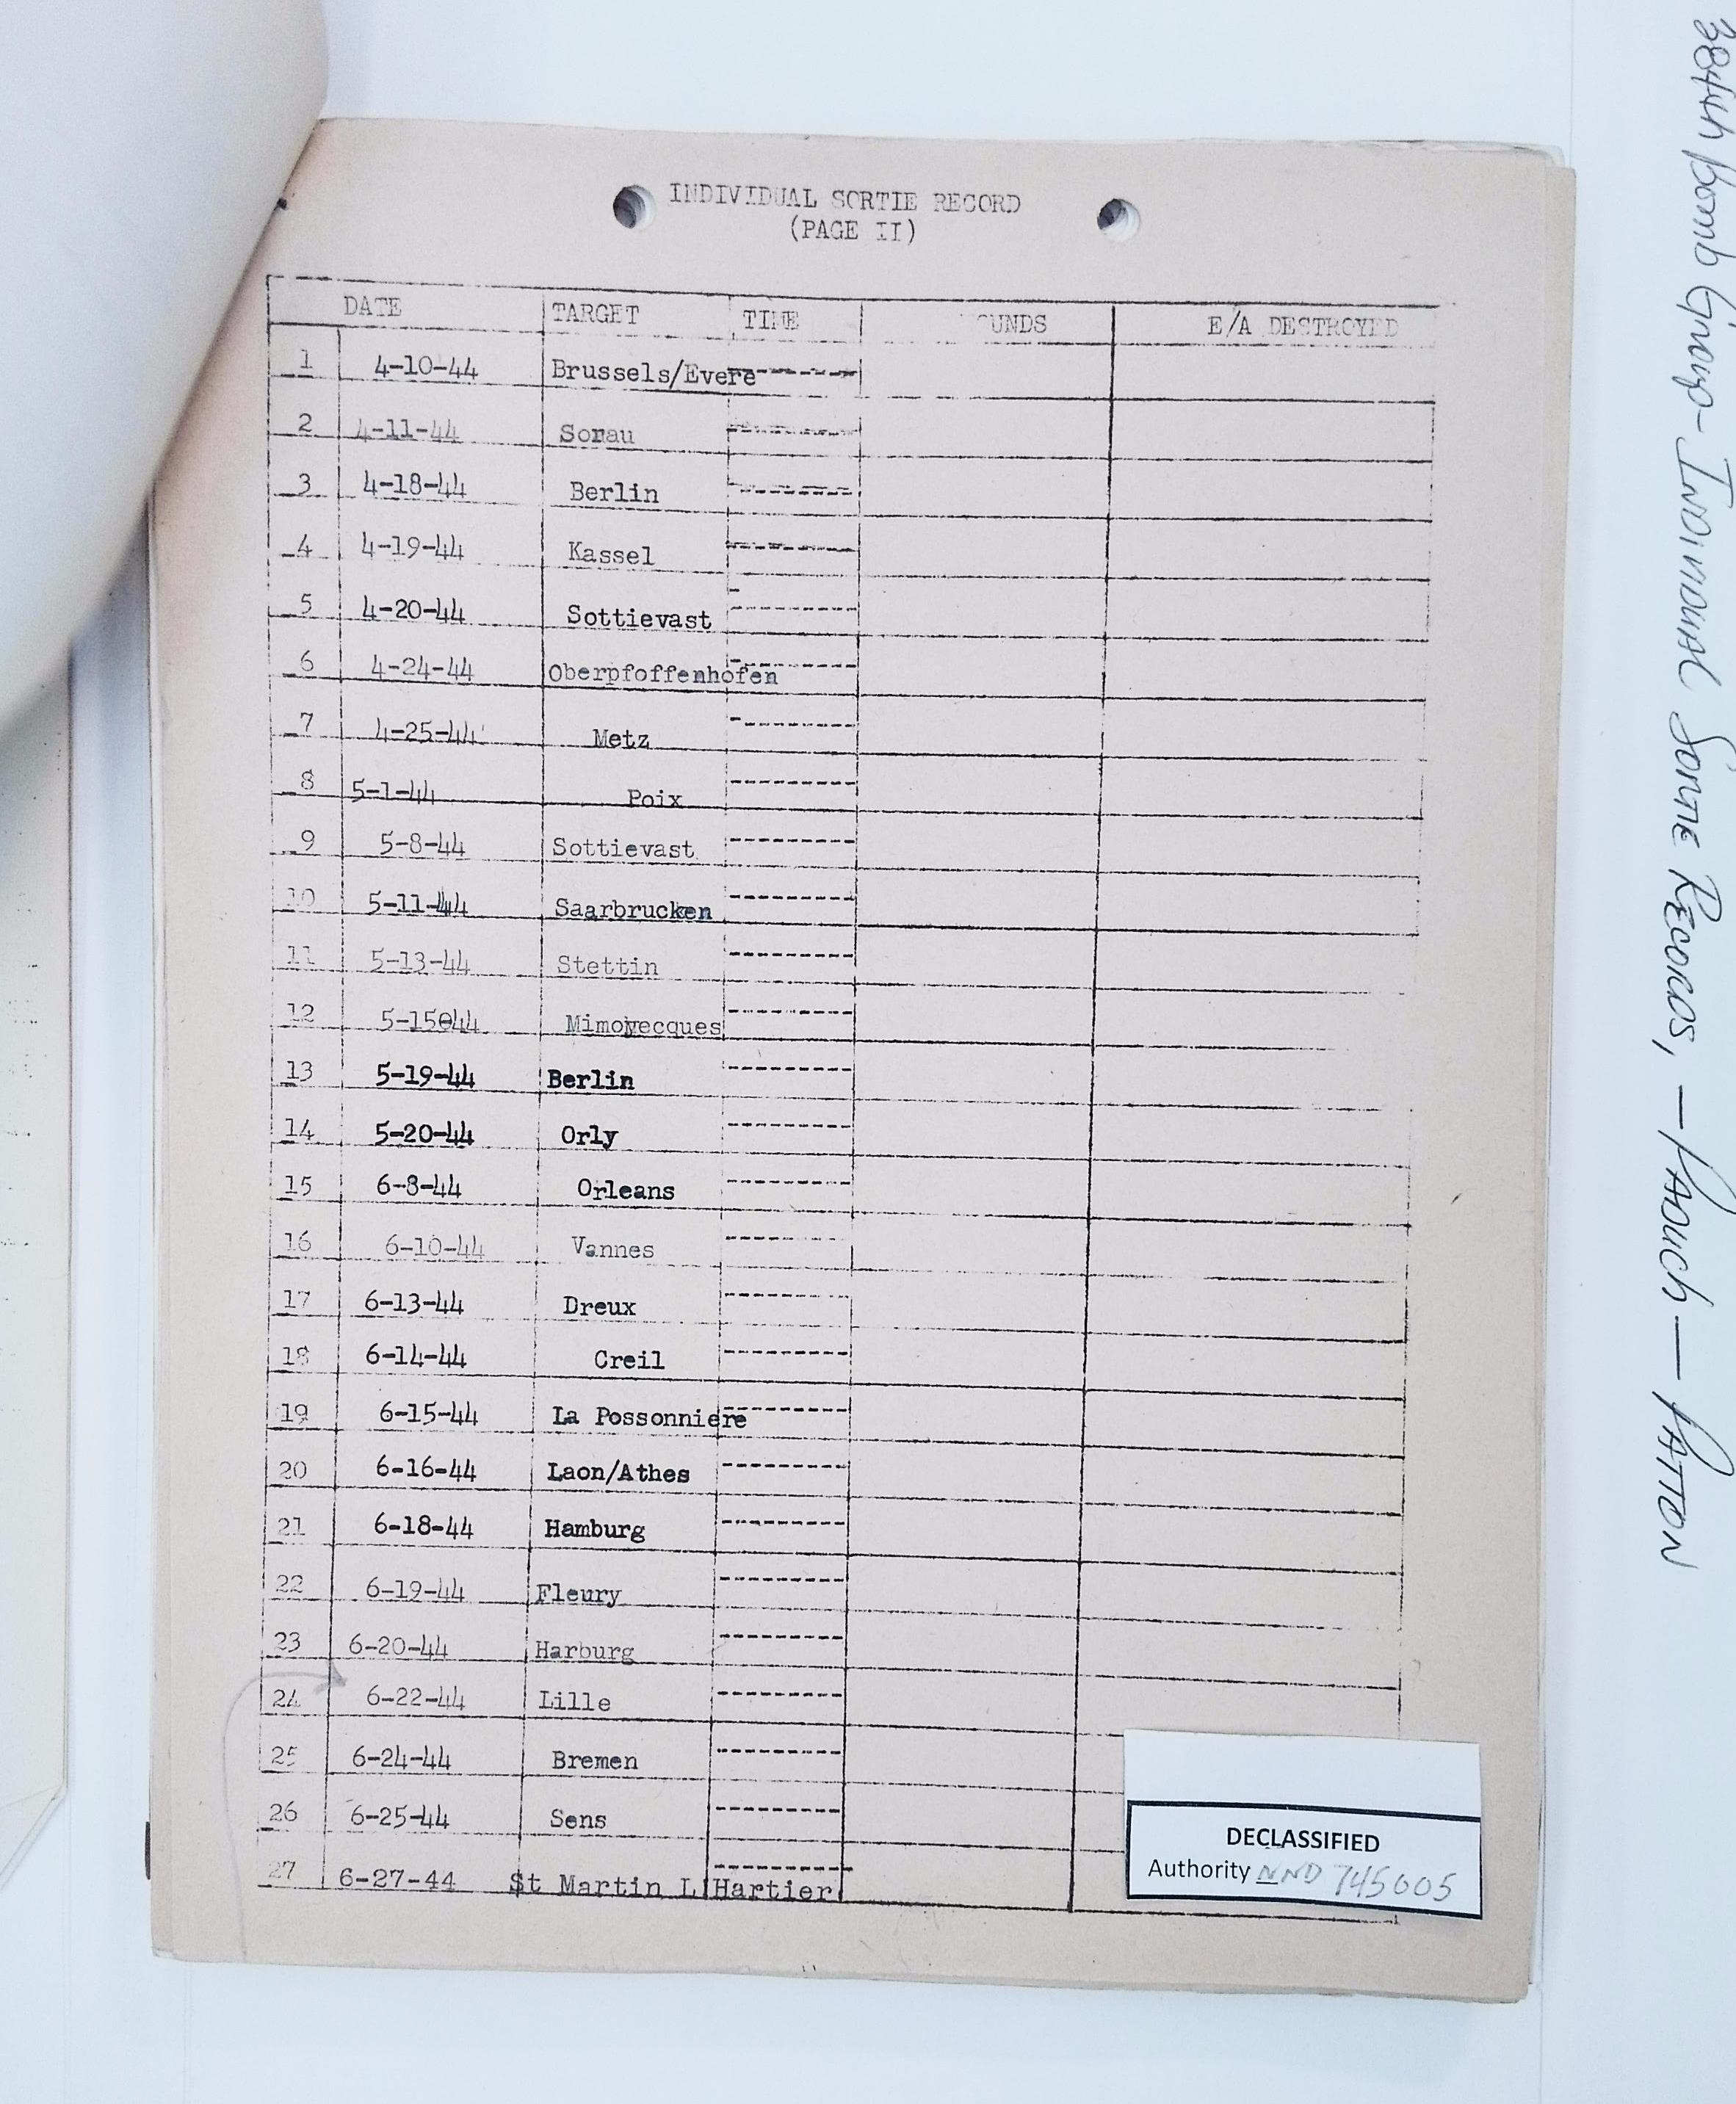 INDIVIDUAL SORTIE RECORD
(PAGE II)
DATE TARGET TIME OUNDS E/A DESTROYED
1 4-10-44 Brussels/Evere
2 4-11-44 Sorau
3 4-18-44 Berlin
4 4-19-44 Kassel
5 4-20-44 Sottievast
6 4-24-44 Oberpfoffenhofen
7 4-25-44 Metz
8 5-1-44 Poix
9 5-8-44 Sottievast
10 5-11-44 Saarbrucken
11 5-13-44 Stettin
12 5-15044 Mimoyecques
13 5-19-44 Berlin
14 5-20-44 Orly
15 6-8-44 Orleans
16 6-10-44 Vannes
17 6-13-44 Dreux
18 6-14-44 Creil
19 6-15-44 La Possonniere
20 6-16-44 Laon/Athes
21 6-18-44 Hamburg
22 6-19-44 Fleury
23 6-20-44 Harburg
24 6-22-44 Lille
25 6-24-44 Bremen
26 6-25-44 Sens
27 6-27-44 St Martin L'Hartier
DECLASSIFIED
Authority NND 745005
384th Bomb Group - INDIVIDUAL SORTIE RECORDS, - PADUCH - PATTON